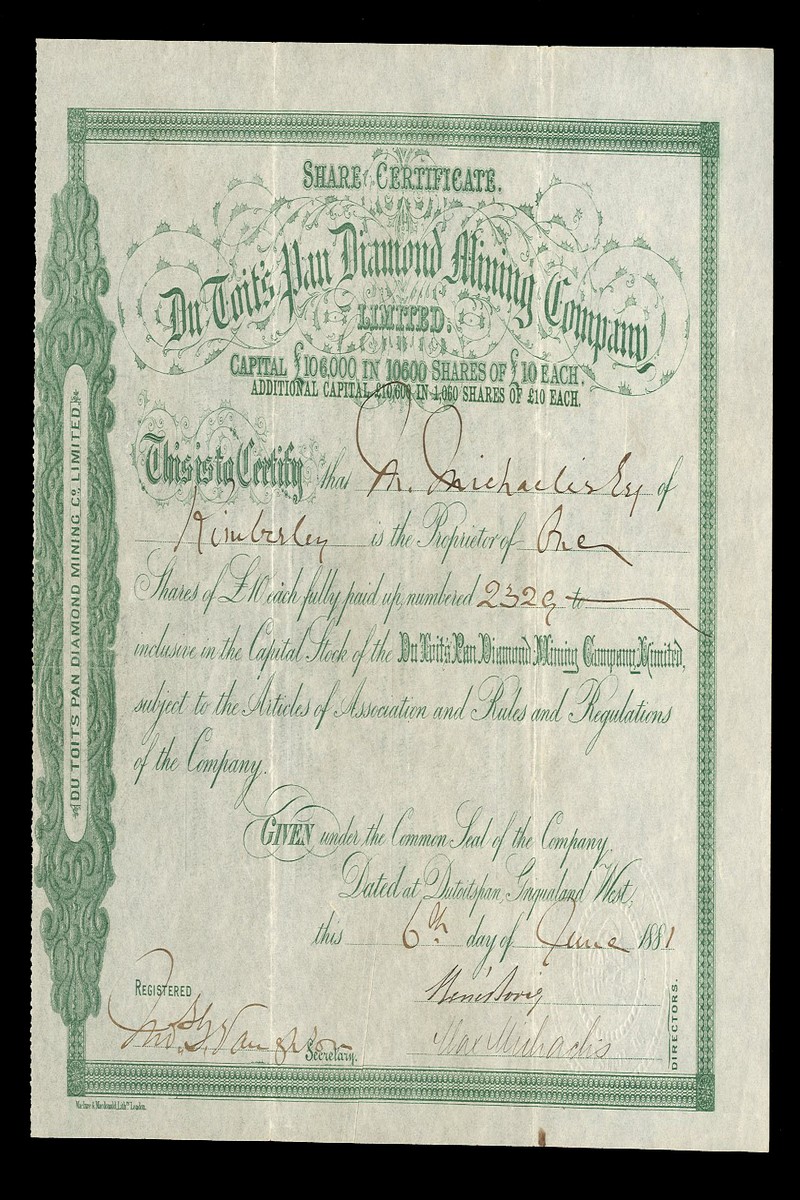 SHARE CERTIFICATE.
Du Toit's Pan Diamond Mining Company
LIMITED.
CAPITAL £106,000 IN 10600 SHARES OF £10 EACH.
ADDITIONAL CAPITAL £10,600 IN 1,060 SHARES OF £10 EACH.
This is to Certify that M. Michaelis Esq of
Kimberley is the Proprietor of One
Shares of £10 each fully paid up, numbered 2329 to
inclusive in the Capital Stock of the Du Toit's Pan Diamond Mining Company, Limited,
subject to the Articles of Association and Rules and Regulations
of the Company.
GIVEN under the Common Seal of the Company,
Dated at Dutoitspan, Griqualand West,
this 6th day of June 1881
REGISTERED
Secretary.
Max Michaelis
DIRECTORS.
DU TOITS PAN DIAMOND MINING Co. LIMITED.
Maclure & Macdonald, Lithrs. London.